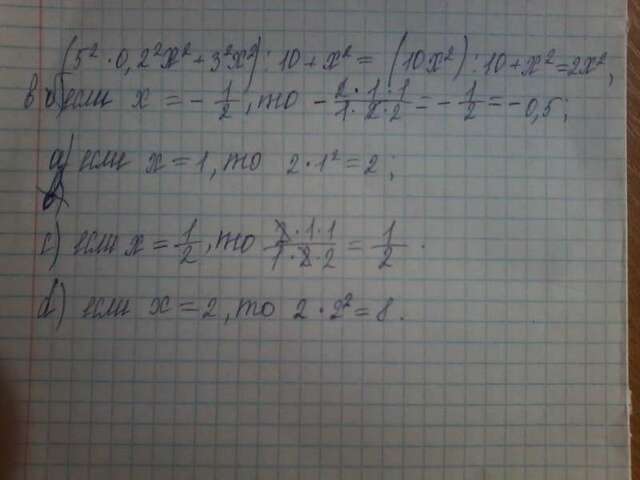 (5²·0,2²x²+3²x²):10+x²=(10x²):10+x²=2x²,
b) если x=-1/2, то -2·1·1/1·2·2=-1/2=-0,5;
a) если x=1, то 2·1²=2;
c) если x=1/2, то 2·1·1/1·2·2=1/2.
d) если x=2, то 2·2²=8.